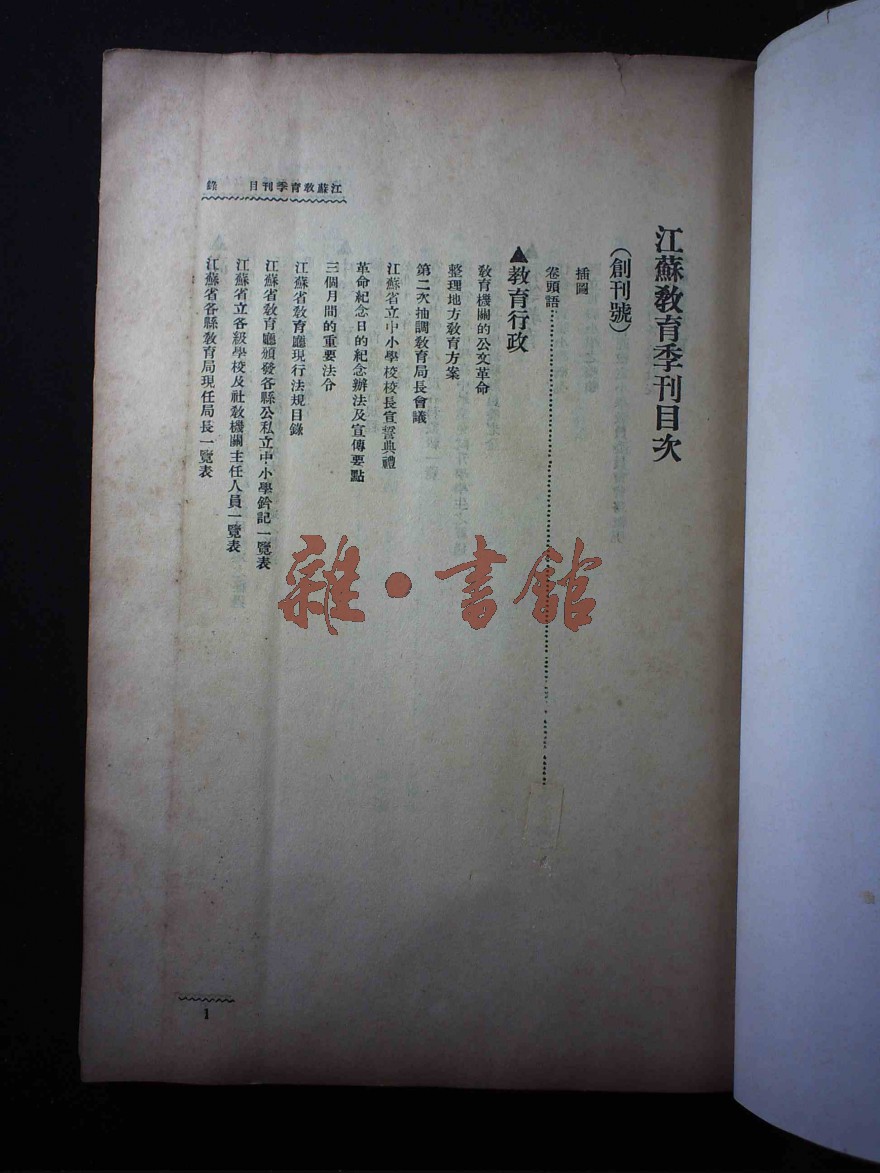 江蘇教育季刊目次
(創刊號)
插圖
卷頭語
▲教育行政
教育機關的公文革命
整理地方教育方案
第二次抽調教育局長會議
江蘇省立中小學校校長宣誓典禮
革命紀念日的紀念辦法及宣傳要點
三個月間的重要法令
江蘇省教育廳現行法規目錄
江蘇省教育廳頒發各縣公私立中小學鈐記一覽表
江蘇省立各級學校及社教機關主任人員一覽表
江蘇省各縣教育局現任局長一覽表
江蘇教育季刊目 錄
1
雜·書館